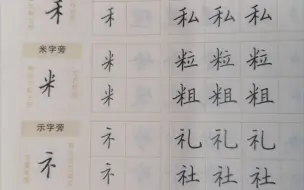 禾 禾 私 私 私
米字旁
米 米 粒 粒 粒
米 粗 粗 粗
示字旁
礻 礻 礼 礼 礼
礻 社 社 社